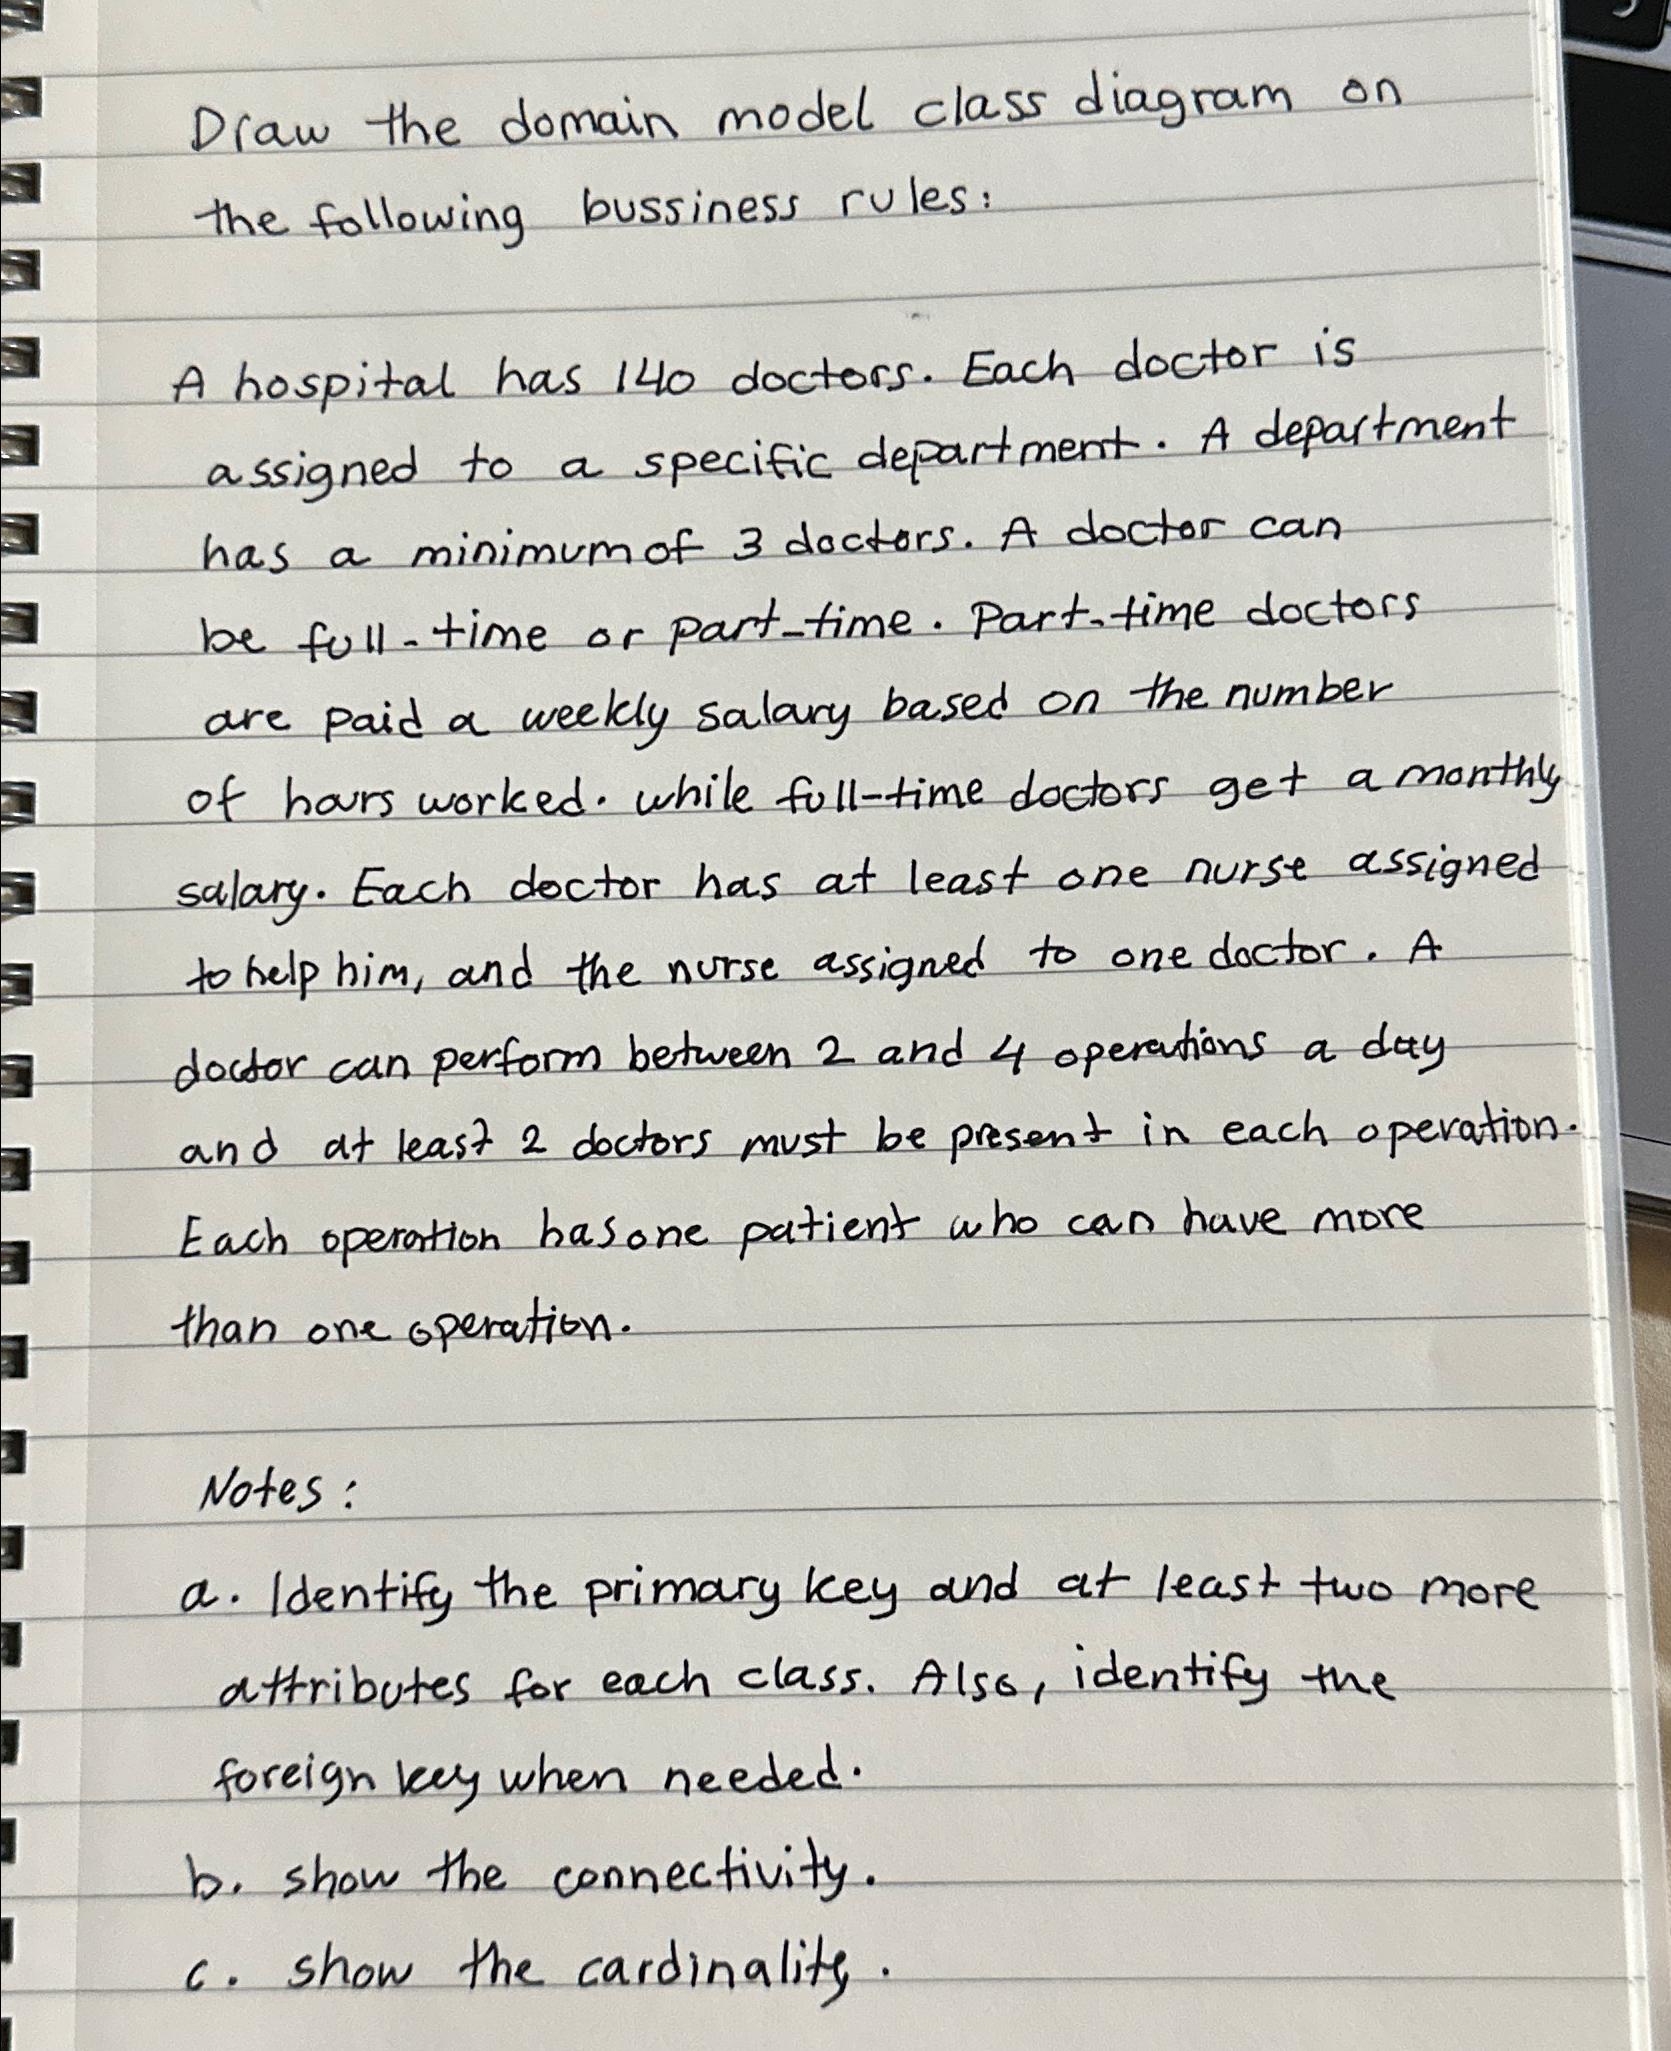 Draw the domain model class diagram on
the following bussiness rules:
A hospital has 140 doctors. Each doctor is
assigned to a specific department. A department
has a minimum of 3 doctors. A doctor can
be full-time or part-time. Part-time doctors
are paid a weekly salary based on the number
of hours worked. while full-time doctors get a monthly
salary. Each doctor has at least one nurse assigned
to help him, and the nurse assigned to one doctor. A
doctor can perform between 2 and 4 operations a day
and at least 2 doctors must be present in each operation.
Each operation has one patient who can have more
than one operation.
Notes:
a. Identify the primary key and at least two more
attributes for each class. Also, identify the
foreign key when needed.
b. show the connectivity.
c. show the cardinality.